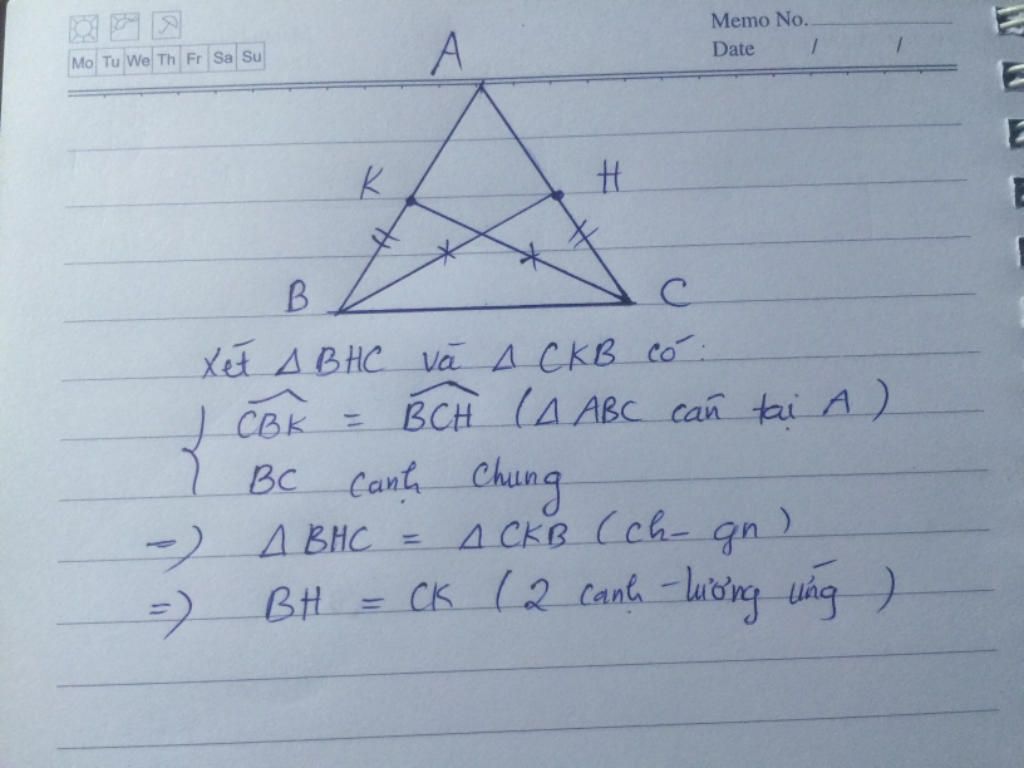 Memo No.
Mo Tu We Th Fr Sa Su
Date / /
A
K H
B C
Xét Δ BHC và Δ CKB có:
CBK = BCH (Δ ABC cân tại A)
BC cạnh chung
=) Δ BHC = Δ CKB (ch - gn)
=) BH = CK (2 cạnh tương ứng)